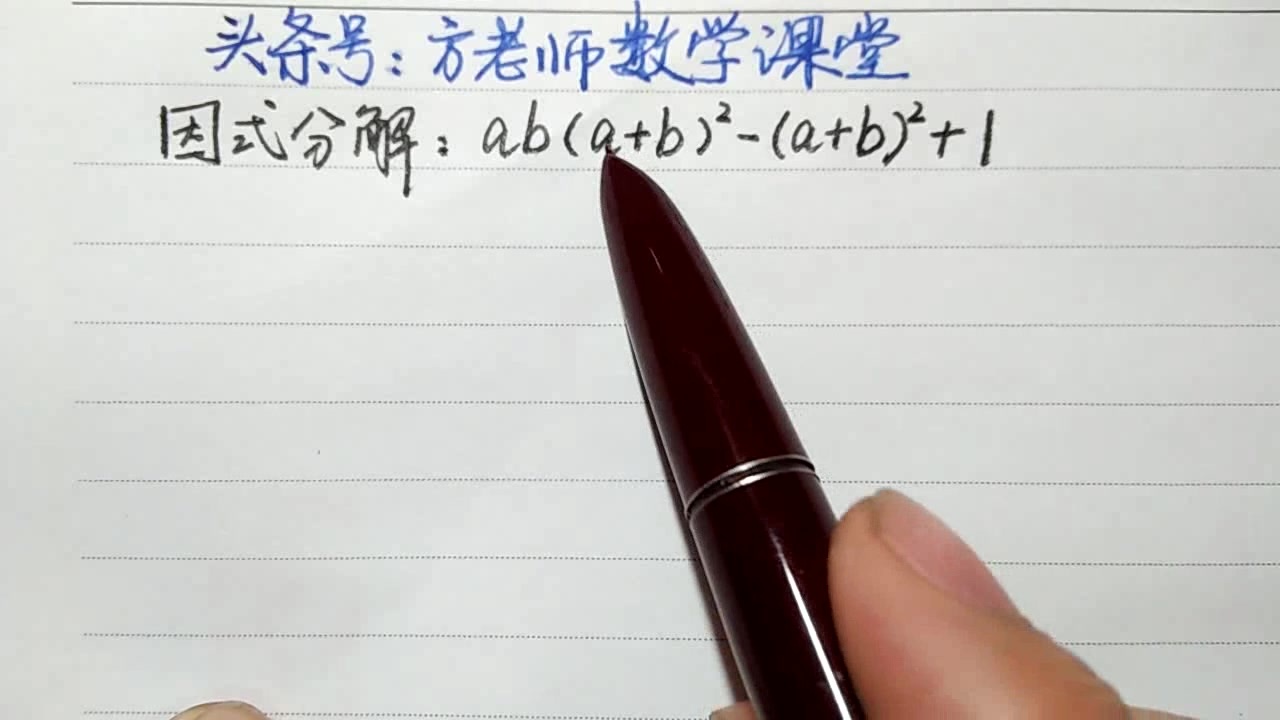 头条号:方老师数学课堂
因式分解:ab(a+b)²-(a+b)²+1